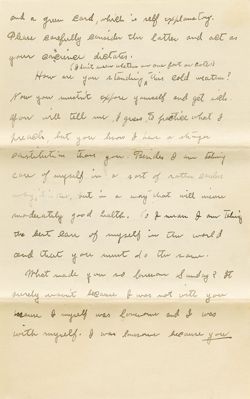 and a green card, which is self explanatory.
Please carefully consider the latter and act as
your conscience dictates.
How are you standing this cold weather?
Now you mustn't expose yourself and get sick.
You will tell me, I guess, to practice what I
preach but you know I have a stronger
constitution than you. Besides I am taking
care of myself in a sort of rather careless
way, but in a way that will mean
moderately good health. So I mean I am taking
the best care of myself in the world
and that you must do the same.
What made you so lonesome Sunday? It
surely wasn't because I was not with you
because I myself was lonesome and I was
with myself. I was lonesome because you